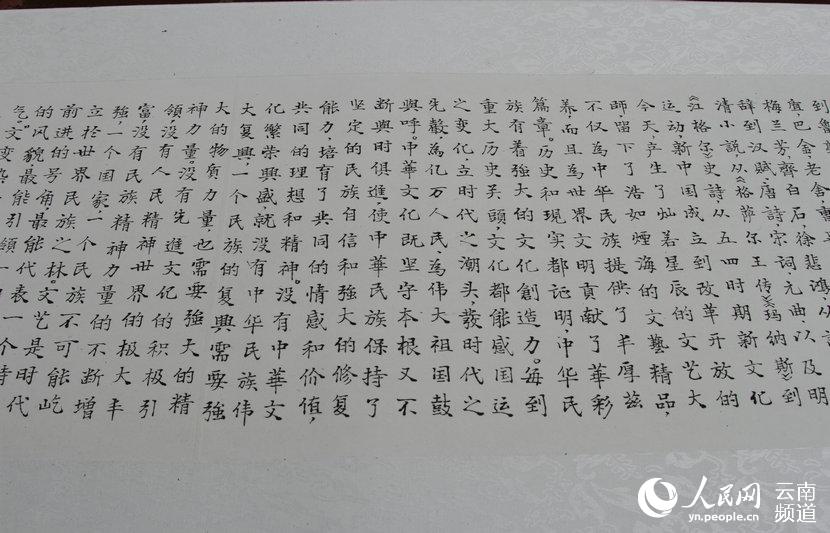 梅兰芳、齐白石、徐悲鴻,从詩
辞到汉赋、唐詩、宋词、元曲以及明
清小説,从格萨尔王传、《玛纳斯》到
《江格尔》史詩,从五四时期新文化
运动、新中国成立到改革开放的
今天,产生了灿若星辰的文艺大
師,留下了浩如煙海的文藝精品,
不仅为中华民族提供了丰厚兹
养,而且为世界文明貢献了華彩
篇章。历史和現实都证明,中华民
族有着強大的文化創造力。每到
重大历史关头,文化都能感国运
之变化、立时代之潮头、發时代之
先聲,為亿万人民為伟大祖国鼓
與呼。中华文化既坚守本根又不
断與时俱進,使中華民族保持了
坚定的民族自信和強大的修复
能力,培育了共同的情感和价值,
共同的理想和精神。没有中華文
化繁荣興盛,就没有中华民族伟
大复興。一个民族的复興需要強
大的物质力量,也需要強大的精
神力量。没有先進文化的积极引
領,没有人民精神世界的极大丰
富,没有民族精神力量的不断增
強,一个国家、一个民族不可能屹
立於世界民族之林。文艺是时代
前进的号角,最能代表一个时代
的风貌,最能引領一个时代
气。
人民网 云南频道
yn.people.cn